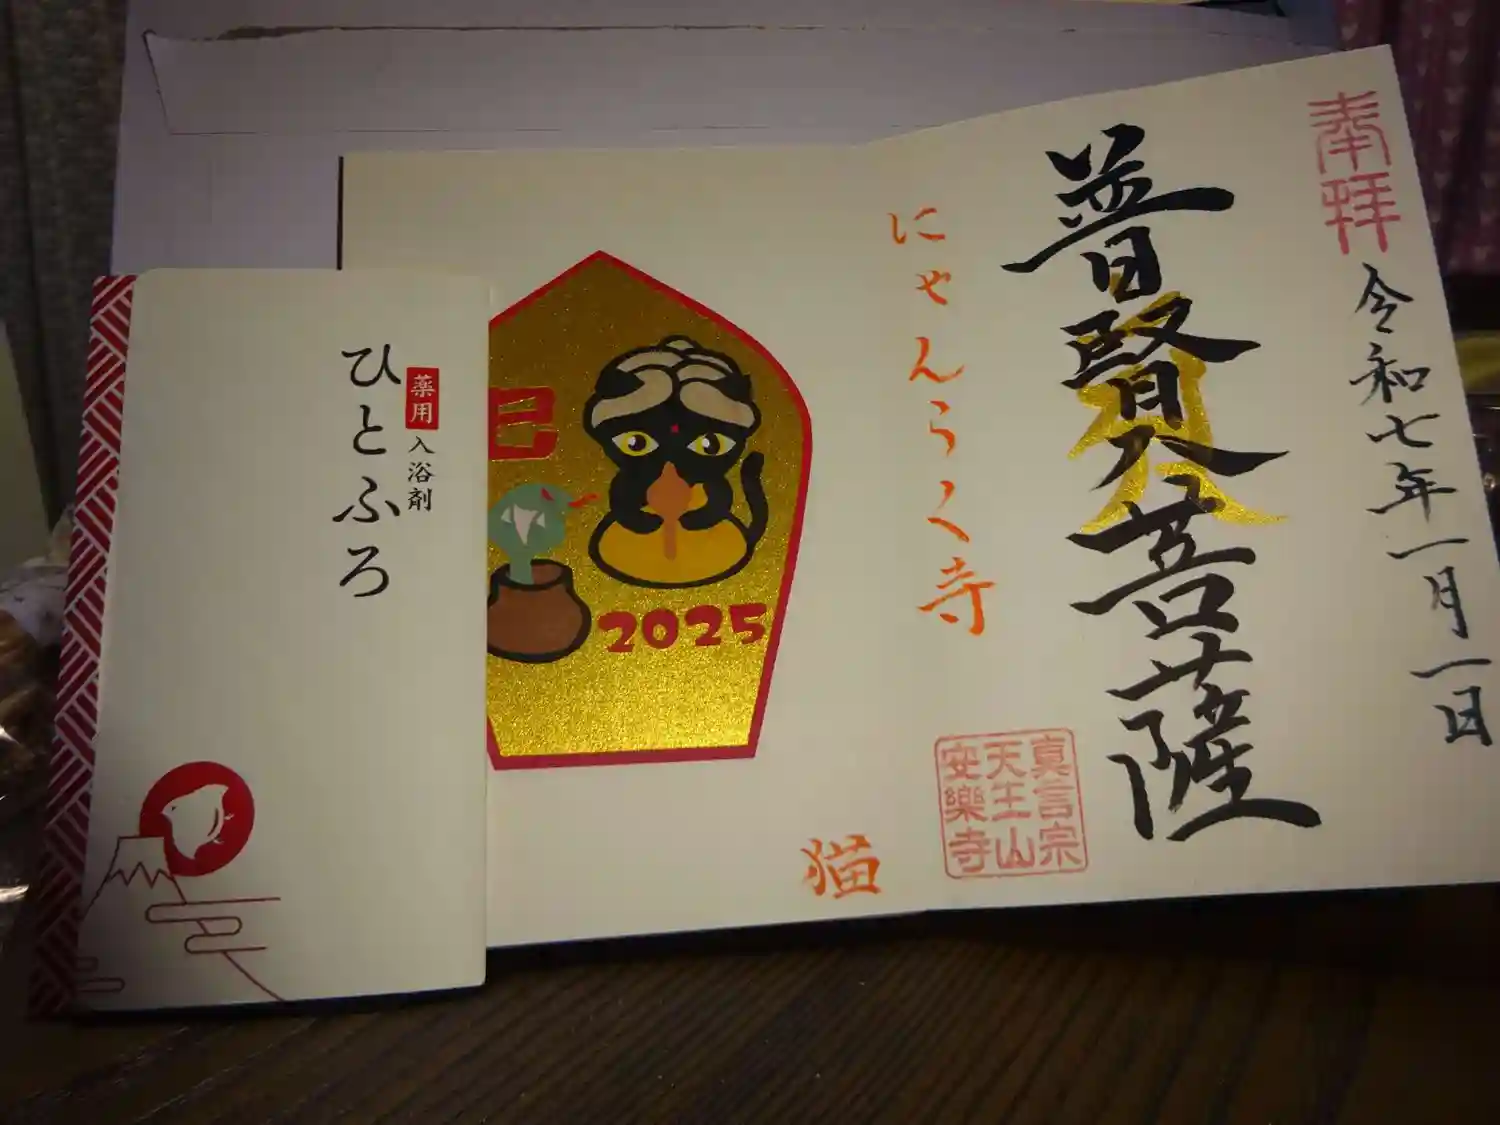 奉拝
令和七年一月一日
普賢菩薩
真言宗
天生山
安樂寺
にゃんらく寺
猫
巳
2025
薬用入浴剤
ひとふろ